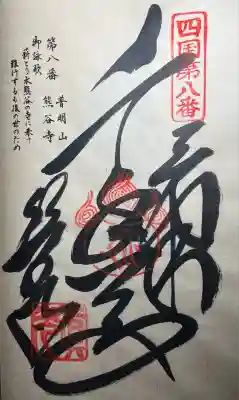 四国第八番
奉納
千手大士
熊谷寺
第八番 普明山
御詠歌 熊谷寺
薪とり水熊谷の寺に来て
難行するも後の世のため